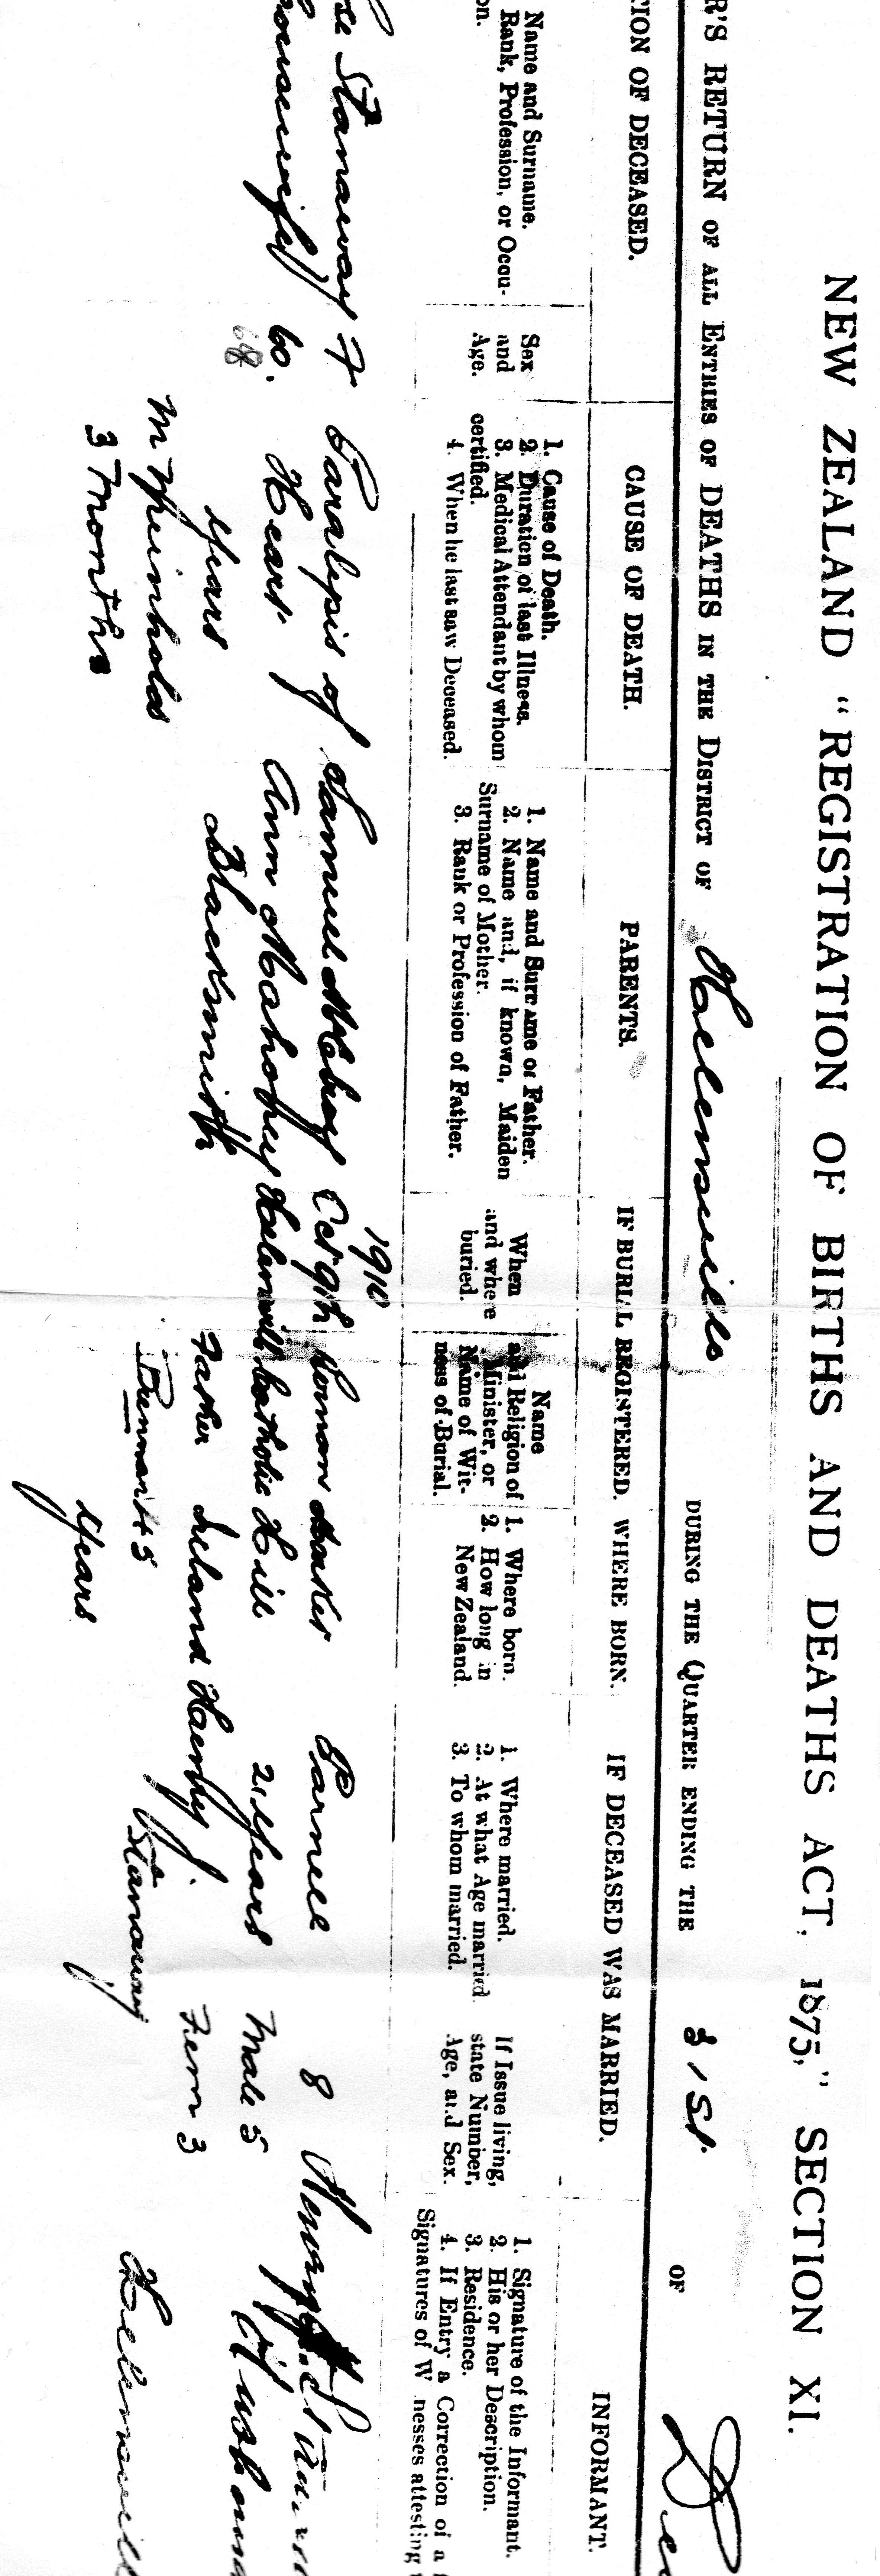 NEW ZEALAND "REGISTRATION OF BIRTHS AND DEATHS ACT, 1875," SECTION XI.
R'S RETURN OF ALL ENTRIES OF DEATHS IN THE DISTRICT OF Helensville DURING THE QUARTER ENDING THE 31st OF Dec
ION OF DECEASED.
Name and Surname.
Rank, Profession, or Occu-
on.
Sex
and
Age.
CAUSE OF DEATH.
1. Cause of Death.
2. Duration of last Illness.
3. Medical Attendant by whom
certified.
4. When he last saw Deceased.
PARENTS.
1. Name and Surname of Father.
2. Name and, if known, Maiden
Surname of Mother.
3. Rank or Profession of Father.
IF BURIAL REGISTERED.
When
and where
buried.
Name
and Religion of
Minister, or
Name of Wit-
ness of Burial.
WHERE BORN.
1. Where born.
2. How long in
New Zealand.
IF DECEASED WAS MARRIED.
1. Where married.
2. At what Age married.
3. To whom married.
If Issue living,
state Number,
Age, and Sex.
INFORMANT.
1. Signature of the Informant.
2. His or her Description.
3. Residence.
4. If Entry a Correction of a
Signatures of W nesses attesting
Stanaway
housewife)
F
60.
68
Paralysis of
Heart
years
Meinhold
3 months
Samuel
Ann Mahoney
Blacksmith
1910
Oct 9th
Helensville
Roman
Catholic
Father
Brennan
Hill
Ireland
45
years
Parnell
21 years
Henry J.
Stanaway
8
Male 5
Fem 3
Henry
Husband
Helensvill